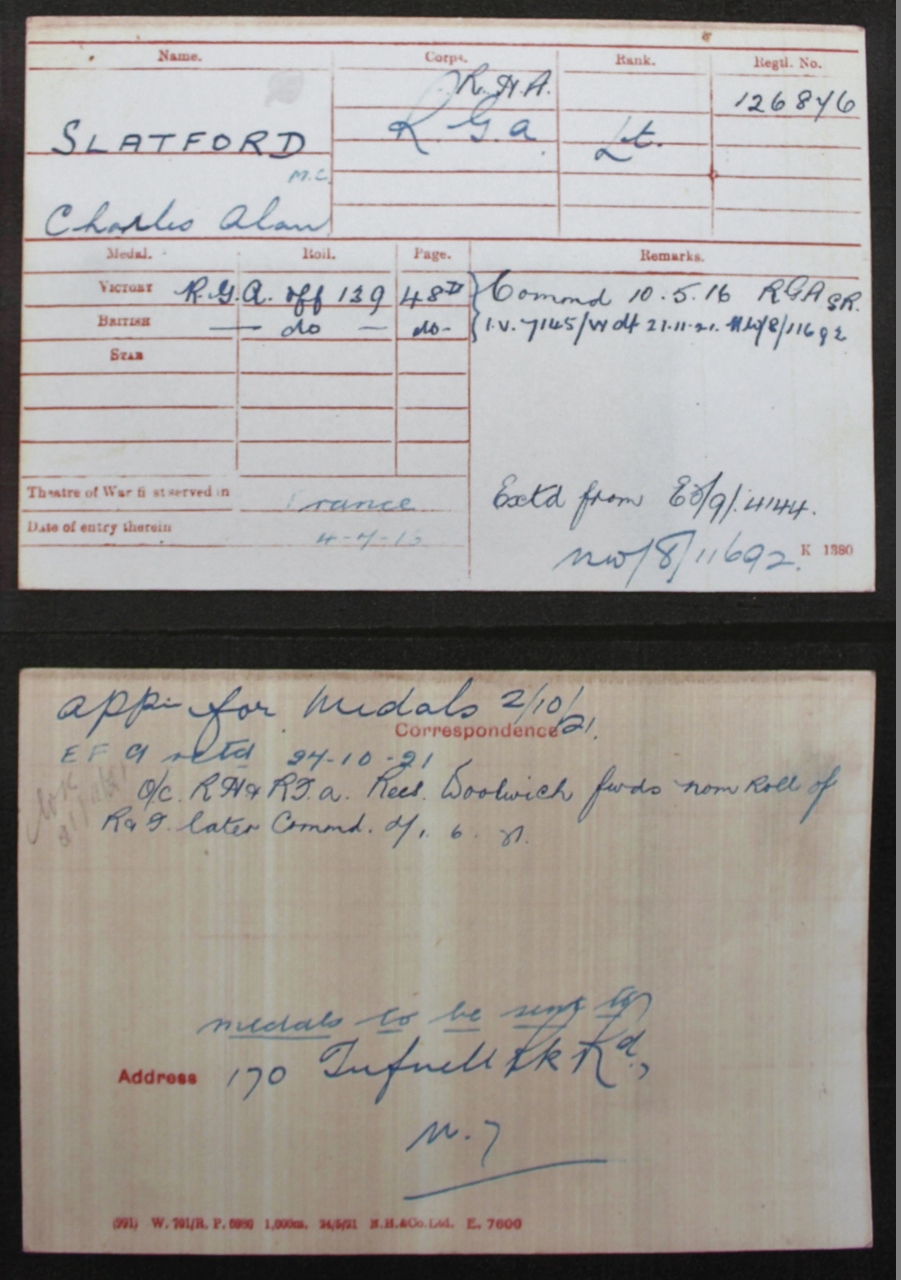 Name. Corps. Rank. Regtl. No.
R.H.A. 126846
SLATFORD R.G.A Lt.
M.C.
Charles Alan
Medal. Roll. Page. Remarks.
VICTORY R.G.A. off 139 48D Commd 10.5.16 RGA SR.
BRITISH — do — do- I.V. 7145/W dt 21.11.21. NW/8/11692
STAR
Theatre of War first served in France
Date of entry therein
Extd from EO/9/4144.
NW/8/11692. K 1380
appn for Medals 2/10/21.
Correspondence
EF 9 retd 24-10-21
O/c. RH & R.F.A. Recs. Woolwich fwds nom Roll of
R & F. later Commd.
medals to be sent to
Address 170 Tufnell Pk Rd.,
N. 7
(991) W. 791/R. P. 6980 1,000m. 24/5/21 B.H.&Co.Ltd. E. 7600